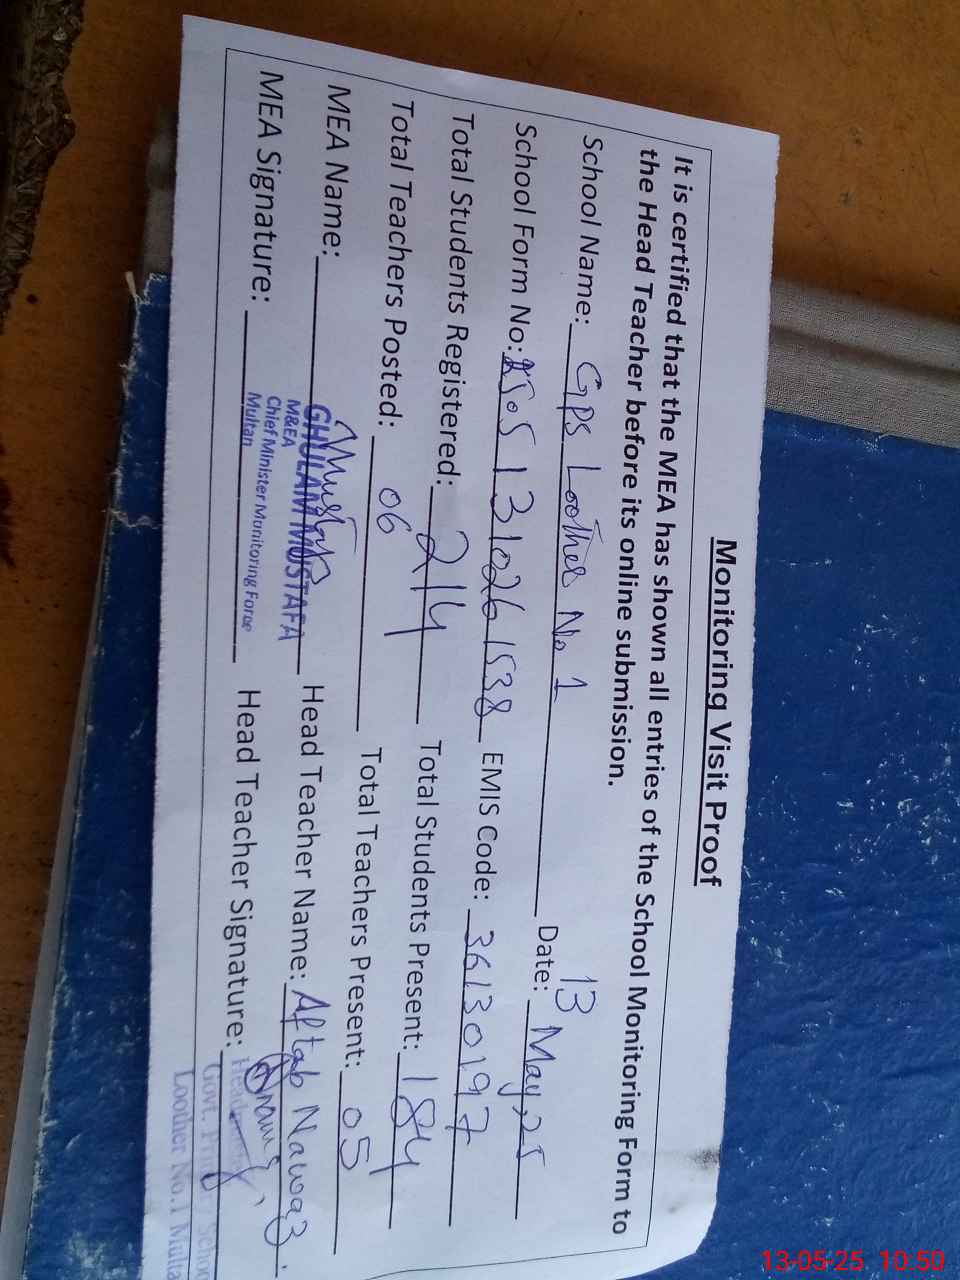 Monitoring Visit Proof
It is certified that the MEA has shown all entries of the School Monitoring Form to
the Head Teacher before its online submission.
School Name: GPS Loother No 1 Date: 13 May, 25
School Form No: 2505 131026 1538 EMIS Code: 36130197
Total Students Registered: 214 Total Students Present: 184
Total Teachers Posted: 06 Total Teachers Present: 05
MEA Name: GHULAM MUSTAFA Head Teacher Name: Aftab Nawaz
M&EA
Chief Minister Monitoring Force
Multan
MEA Signature: Head Teacher Signature:
Govt. School
Loother No.1 Multa
13-05-25 10:50